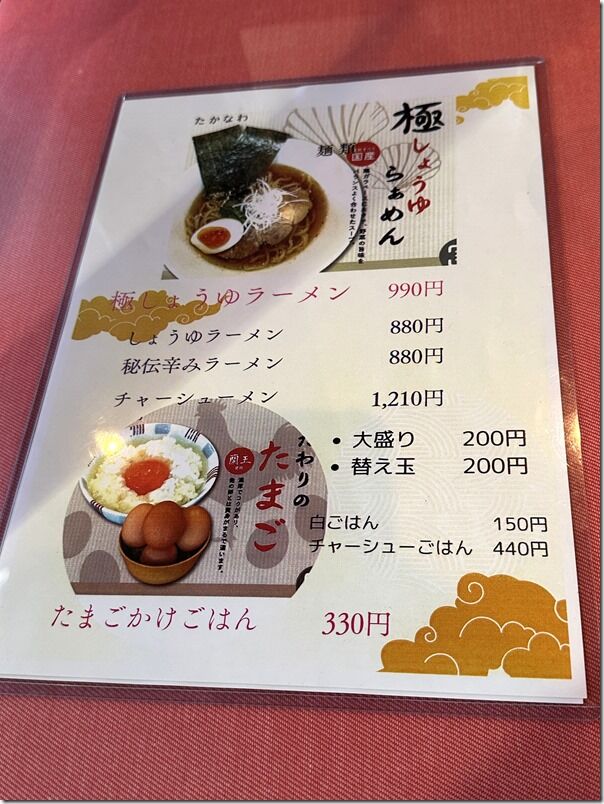 たかなわ
極
しょうゆ
らぁめん
麺類
国産
極しょうゆラーメン 990円
しょうゆラーメン 880円
秘伝辛みラーメン 880円
チャーシューメン 1,210円
• 大盛り 200円
• 替え玉 200円
だわりの
たまご
濃厚でコクがあり、
他の卵とは黄身がまるで違います。
白ごはん 150円
チャーシューごはん 440円
たまごかけごはん 330円